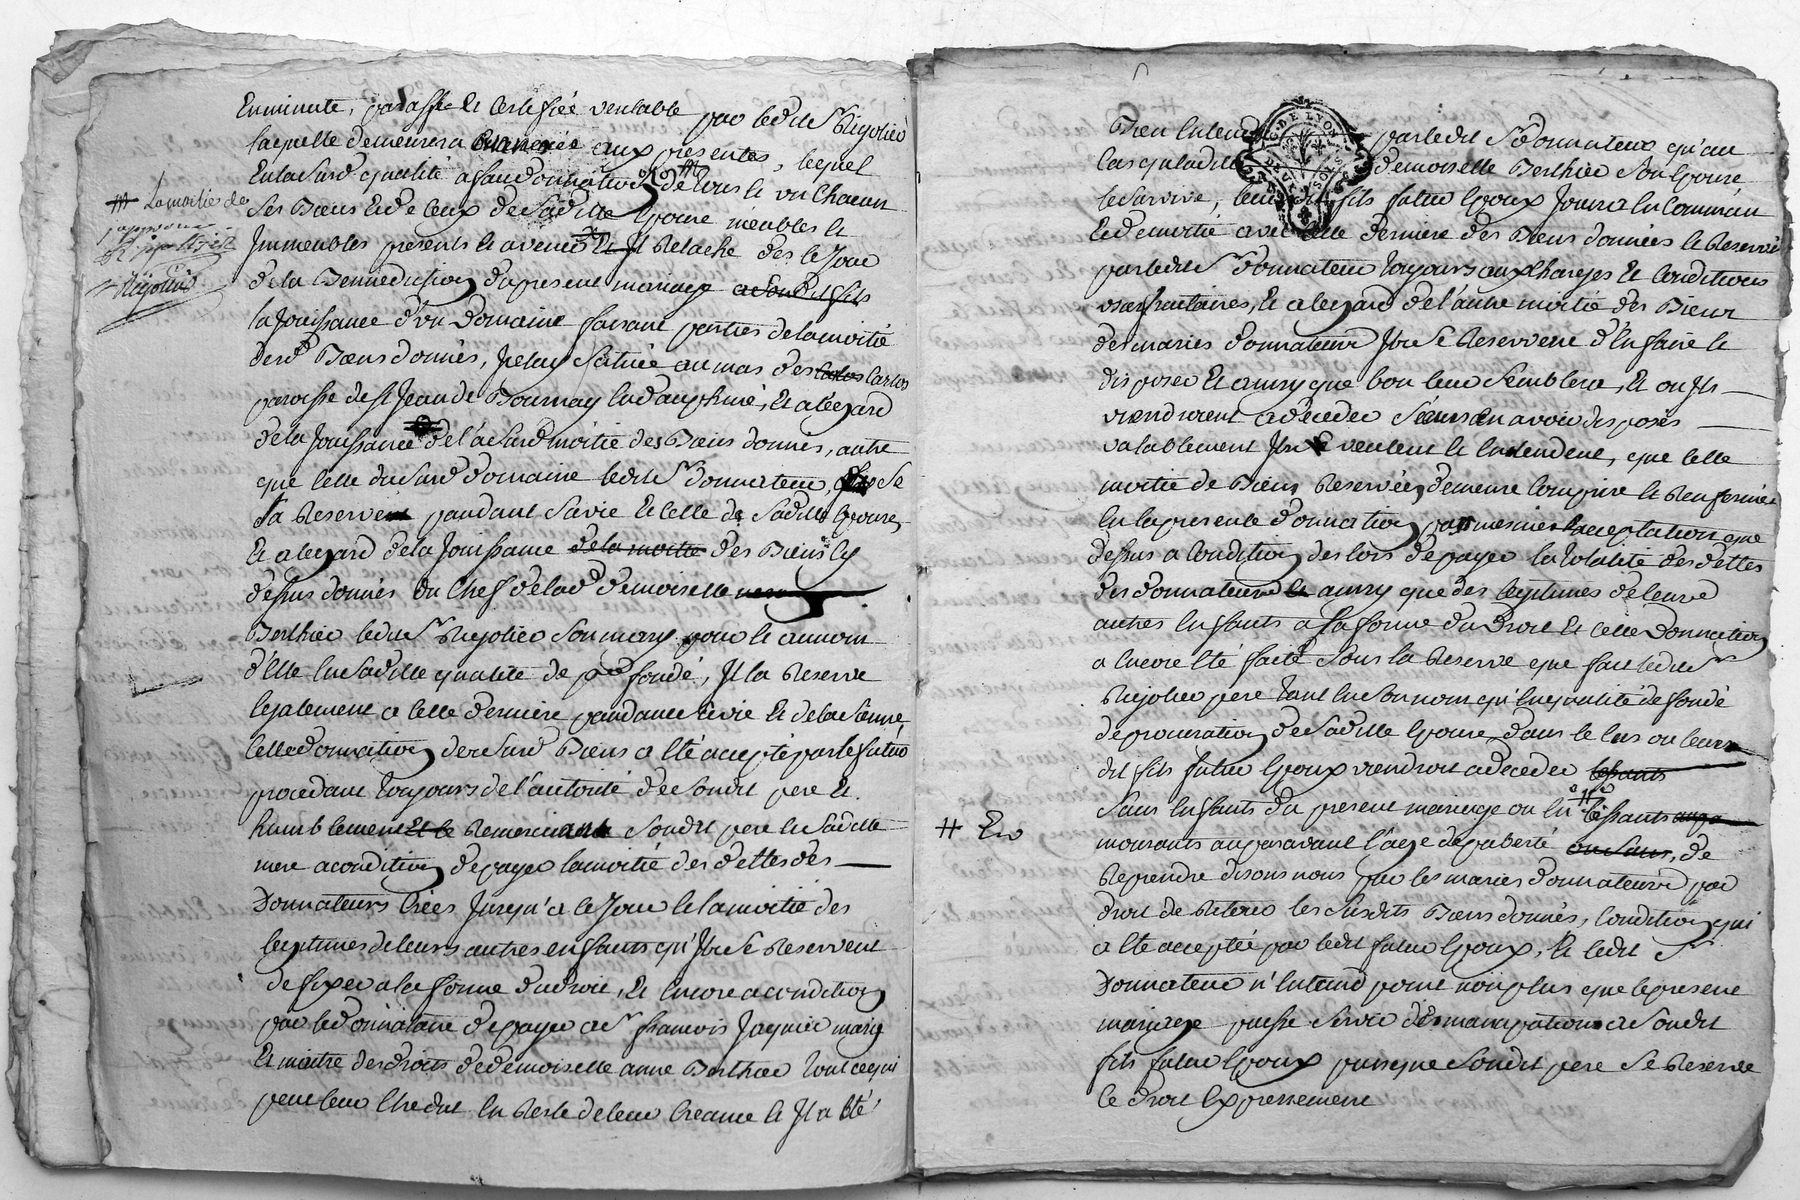 Enminute, paraffée et Certifiée veritable par ledit Sr Rigolier
laquelle demeurera annexée aux presentes, lequel
Enlasusd qualité afaitdonnation de tous et un Chacun
# Lamoitié de
japprouve
Rigollier
Rigollier
Ses Biens Et de Ceux de Sadite Epouse meubles et
Jmmeubles presents et avenir Et Jl Relache des Ce Jour
de la Bennediction dupresent mariage a Sondit fils
la Jouissance d'un Domaine faisant parties delamoitié
desd Biens donnés, Jceluy Situé au mas des Carlos
paroisse de St Jean de Bournay En dauphiné, Et alegard
dela Jouissance de l'a Susd moitié des Biens donnés, autre
que Celle du Susd domaine ledit Sr donnateur, Se
la Reserve pandant Savie Et Celle de Sadite Epouse,
Et alegard dela Jouissance dela moitié des Biens Cy
dessus donnés du Chef de lad demoiselle
Berthier ledit Sr Rigolier Son mary pour et aunom
d'Elle En Sadite qualité de pr fondé, Jl la Reserve
Egalement a Cette derniere pandant Savie Et dela Sienne
Cette donnation de Susd Biens a Eté acceptée par le futur
procedant toujours de l'autorité de Sondit pere Et
humblement Et Remerciant Sondit pere En Sadite
mere acondition de payer lamoitié des dettes des
Donnateurs Créés Jusqu'a Ce Jour Et lamoitié des
legitimes de leurs autres enfants qu'Jls Se Reservent
de fixer a la forme du droit, Et Encore acondition
par le donnataire de payer a Sr francois Jaymier mary
Et maitre des droits de demoiselle anne Berthier tout cequi
peut leur Etre dut En Reste de leur Creance Et Jl a Eté
G. DE LYON
Bien Entendu par ledit Sr donnateur qu'au
Cas qu'ladite demoiselle Berthier Son Epouse
le Survive, leur dit fils futur Epoux Jouira En Commun
Et de moitié avec Cette derniere des Biens donnés Et Reservés
par ledit Sr donnateur toujours aux Charges Et Conditions
usufruitaires, Et alegard de l'autre moitié des Biens
des mariés donnateurs Jls Se Reservent d'En faire Et
disposer Et ainsy que bon leur Semblera, Et ou Jls
viendroient a déceder Sans En avoir disposés
valablement Jls veulent Et Entendent, que Cette
moitié de Biens Reservées demeure Comprise Et Renfermée
En la presente donnation par mesme acceptation que
dessus a Condition des lors de payer la totalité des dettes
des donnateurs ainsy que des legitimes de leurs
autres Enfants a la forme du Droit Et Cette Donnation
a Encore Eté faite Sous la Reserve que fait ledit Sr
Rigolier pere tant En Son nom qu'En qualité de fondé
de procuration de Sadite Epouse, dans le Cas ou leur
dit fils futur Epoux viendroit a deceder
Sans Enfants du present mariage ou En
# Ero
mourants auparavant l'age de puberté ou Sans, de
Reprendre disons nous par les mariés donnateurs par
droit de Retour les Susdits Biens donnés, Condition qui
a Eté acceptée par ledit futur Epoux, Et ledit Sr
Donnateur n'Entend point non plus que le present
mariage puisse Servir d'Emancipation a Sondit
fils futur Epoux puisque Sondit pere Se Reserve
Ce droit Expressement